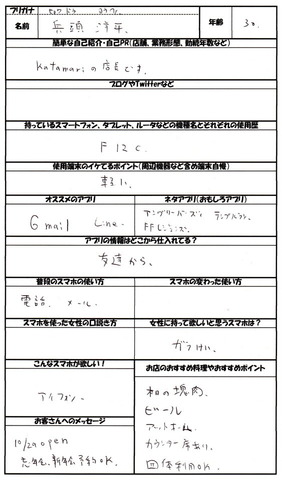 フリガナ
名前
兵頭 洋平
年齢
30
簡単な自己紹介・自己PR(店舗、業務形態、勤続年数など)
Katamariの店長です。
ブログやTwitterなど
持っているスマートフォン、タブレット、ルータなどの機種名とそれぞれの使用歴
F12C
使用端末のイケてるポイント(周辺機器など含め端末自慢)
軽い
オススメのアプリ
ネタアプリ(おもしろアプリ)
Gmail Line
アングリーバーズ、テンプルラン、
アプリの情報はどこから仕入れてる?
友達から、
普段のスマホの使い方
スマホの変わった使い方
電話、メール、
スマホを使った女性の口説き方
女性に持って欲しいと思うスマホは?
ガラけい、
こんなスマホが欲しい!
お店のおすすめ料理やおすすめポイント
アイフォン
和の塊肉
ビール
アットホーム
カウンター席あり、
団体利用OK、
お客さんへのメッセージ
10/29 open
忘年会、新年会予約OK、